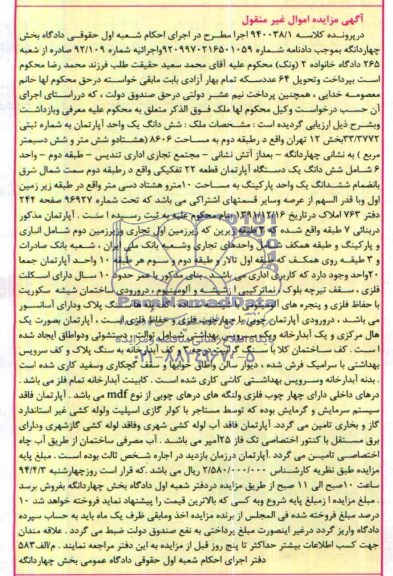 آگهی مزایده اموال غیر منقول
درپرونده کلاسه ۹۴۰۰۳۸/۱ اجرا مطرح در اجرای احکام شعبه اول حقوقی دادگاه بخش
چهاردانگه بموجب دادنامه شماره ۹۲۰۹۹۷۰۲۱۶۵۰۱۰۵۹ واجرائیه شماره ۹۲/۱۰۹ صادره از شعبه
۲۶۵ دادگاه خانواده ۲ (ونک) محکوم علیه آقای محمد سعید حقیقت طلب فرزند محمد رضا محکوم
است بپرداخت وتحویل ۶۴ عددسکه تمام بهار آزادی بابت مابقی خواسته درحق محکوم لها خانم
معصومه خدایی ، همچنین پرداخت نیم عشر دولتی درحق صندوق دولت ، که درراستای اجرای
آن حسب درخواست وکیل محکوم لها ملک فوق الذکر متعلق به محکوم علیه معرفی وبازداشت
وبشرح ذیل ارزیابی گردیده است : مشخصات ملک : شش دانگ یک واحد آپارتمان به شماره ثبتی
۳۳/۳۷۷۲ بخش ۱۲ تهران واقع در طبقه دوم به مساحت ۸۶۰۶ (هشتادو شش متر و شش دسیمتر
مربع ) به نشانی چهاردانگه - بعداز آتش نشانی - مجتمع تجاری اداری تندیس - طبقه دوم - واحد
۶ شامل شش دانگ یک دستگاه آپارتمان قطعه ۲۲ تفکیکی واقع در طبقه دوم سمت شمال شرق
بانضمام ششدانگ یک واحد پارکینگ به مساحت ۱۰مترو هشتاد دسی متر واقع در طبقه زیر زمین
اول وبا قدر السهم از عرصه وسایر قسمتهای اشتراکی می باشد که تحت شماره ۹۶۹۲۷ صفحه ۲۴۴
دفتر ۷۶۳ املاک درتاریخ ۱۳۹۱/۱۲/۱۶ بنام محکوم علیه به ثبت رسیده است . آپارتمان مذکور
دربنائی ۷ طبقه واقع شده که ۲ طبقه زیرین که زیرزمین اول تجاری و زیرزمین دوم شامل انباری
و پارکینگ و طبقه همکف شامل واحدهای تجاری وشعبه بانک ملی ایران ، شعبه بانک صادرات
و ۳ طبقه روی همکف که طبقه اول تالار و طبقه دوم و سوم هر طبقه ۱۰ واحد آپارتمان جمعا
۲۰واحد وجود دارد که کاربری اداری می باشد ، بنای مذکور با عمر حدود ۱۰ سال دارای اسکلت
فلزی ، سقف تیرچه بلوک ، نماترکیبی از شیشه و آلومینیوم ، درورودی ساختمان شیشه سکوریت
با حفاظ فلزی و پنجره های آلومینیوم
می باشد ، درورودی آپارتمان چوبی با چهارچوب فلزی و حفاظ فلزی است ، آپارتمان بصورت یک
هال مرکزی و یک آبدارخانه و یک سرویس بهداشتی شامل توالت و دستشوئی ودواطاق ایجاد شده
است . کف ساختمان کلا با سنگ
بهداشتی با سرامیک فرش شده ، دیوار سالن واطاق خوابها و سقف گچکاری وسفید کاری شده است
. بدنه آبدارخانه وسرویس بهداشتی کاشی کاری شده است . کابینت آبدارخانه تمام فلز می باشد .
درهای داخلی دارای چهار چوب فلزی ولنگه های درهای چوبی از نوع mdf می باشد . آپارتمان فاقد
سیستم سرمایش و گرمایش بوده که توسط مستاجر با کولر گازی اسپلیت ولوله کشی غیر استاندارد
گاز و بخاری تامین می گردد. آپارتمان فاقد آب لوله کشی شهری وفاقد لوله کشی گازشهری ودارای
برق مستقل با کنتور اختصاصی تک فاز ۲۵آمپر می باشند . آب مصرفی ساختمان از طریق آب چاه
اختصاصی تامین می گردد. آپارتمان درزمان بازدید در اجاره شخص ثالث بوده است . مبلغ پایه
مزایده طبق نظریه کارشناس ۲/۵۸۰/۰۰۰/۰۰۰ ریال می باشد .که قرار است روزچهارشنبه ۹۴/۴/۳
ساعت ۱۰صبح الی ۱۱ صبح از طریق مزایده دردفتر شعبه اول دادگاه بخش چهاردانگه بفروش برسد
. مبلغ مزایده ا زمبلغ پایه شروع وبه کسی که بالاترین قیمت را پیشنهاد نماید فروخته خواهد شد ۱۰
درصد مبلغ فروخته شده فی المجلس از برنده مزایده اخذ ومابقی ظرف یک ماه باید به حساب سپرده
دادگاه واریز گردد درغیر اینصورت مبلغ پرداختی به نفع صندوق دولت ضبط می گردد . علاقه مندان
جهت کسب اطلاعات بیشتر حداکثر تا پنج روز قبل از مزایده به این دفتر مراجعه نمایند . م/الف۵۸۳
دفتر اجرای احکام شعبه اول حقوقی دادگاه عمومی بخش چهاردانگه